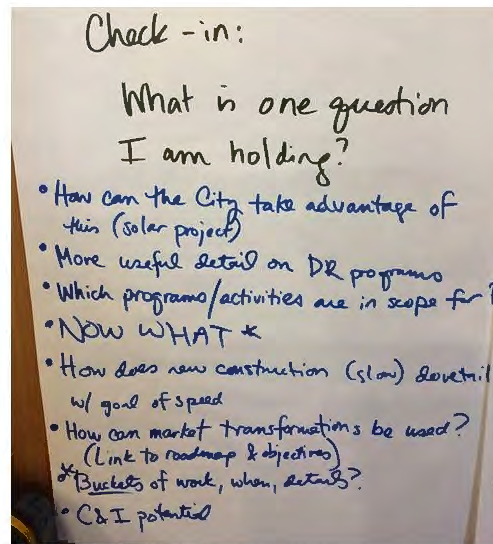 Check-in:
What is one question
I am holding?
• How can the City take advantage of
this (solar project)
• More useful detail on DR programs
• Which programs/activities are in scope for?
• NOW WHAT *
• How does new construction (slow) dovetail
w/ goal of speed
• How can market transformations be used?
(Link to roadmap & objectives)
* Buckets of work, when, details?
• C&I potential